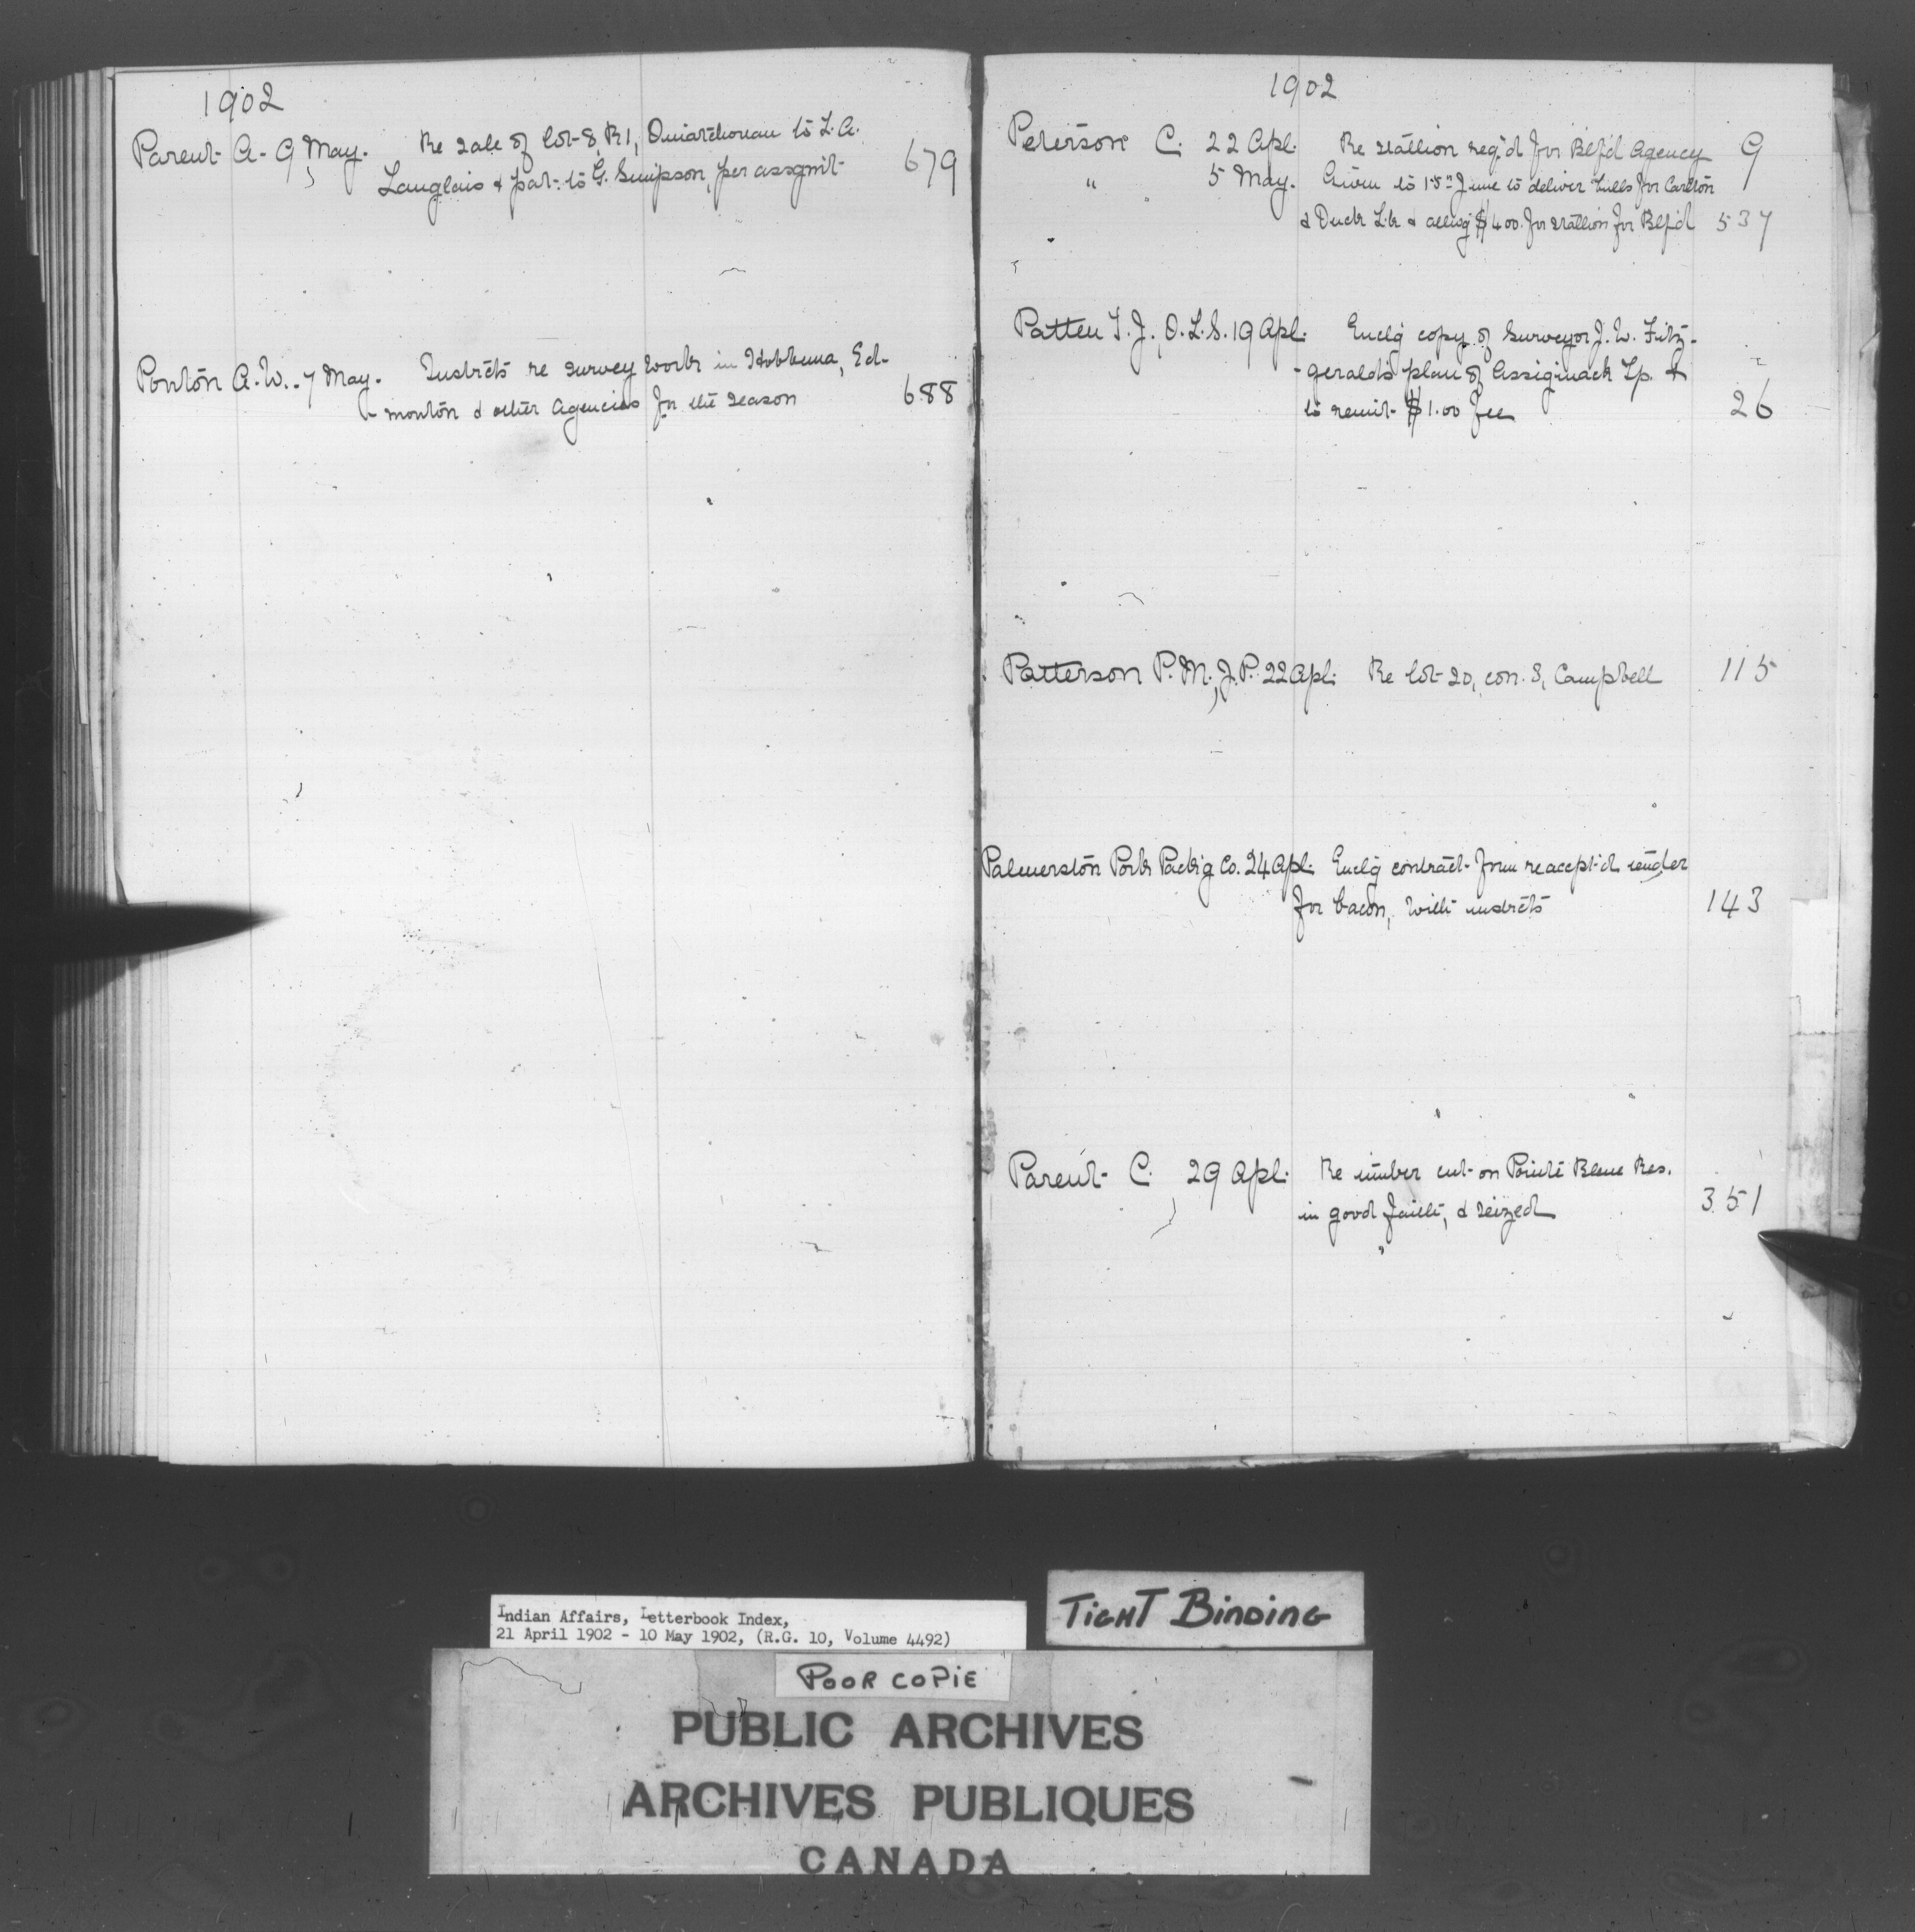 1902
Parent A. 9 May. Re sale of lot 8, R1, Ouiatchouan to L. A.
Langlais & pat. to G. Simpson, per assgmt 679
Ponton A. W. 7 May. Instrcts re survey work in Hobbema, Ed-
monton & other agencies for the season 688
1902
Peterson C. 22 Apl. Re stallion req'd for Blf'd Agency 9
" 5 May. Given to 15" June to deliver bulls for Carlton
& Duck Lk & allwg $400. for stallion for Blf'd 537
Patten T. J., O. L. S. 19 Apl. Enclg copy of Surveyor J. W. Fitz-
-gerald's plan of Assiginack Tp. &
to remit $1.00 fee 26
Patterson P. M., J. P. 22 Apl. Re lot 20, con. 8, Campbell 115
Palmerston Pork Pack'g Co. 24 Apl. Enclg contract form re accept'd tender
for bacon, with instrcts 143
Parent C. 29 Apl. Re timber cut on Pointe Bleue Res.
in good faith, & seized 351
Indian Affairs, Letterbook Index,
21 April 1902 - 10 May 1902, (R.G. 10, Volume 4492)
TIGHT BINDING
POOR COPIE
PUBLIC ARCHIVES
ARCHIVES PUBLIQUES
CANADA